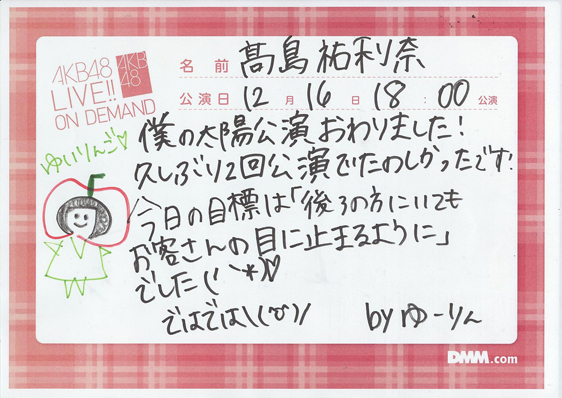 AKB48
LIVE!!
ON DEMAND
AKB
48
名前 髙島祐利奈
公演日 12月16日 18:00 公演
ゆいりんご♡
僕の太陽公演おわりました!
久しぶり2回公演でたのしかったです!
今日の目標は「後ろの方にいても
お客さんの目に止まるように」
でした(^*)♡
ではでは\(^o^)/
by ゆーりん
DMM.com